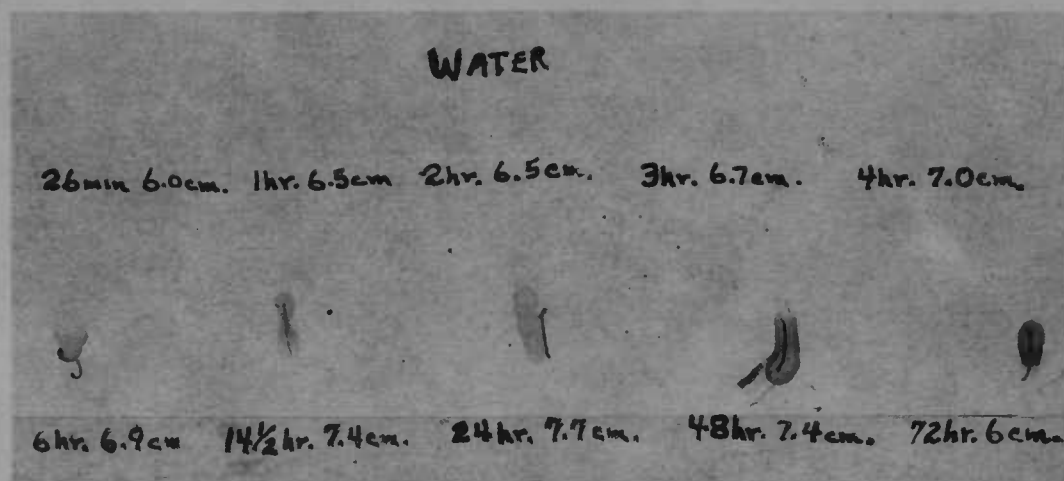 WATER
26min 6.0cm. 1hr. 6.5cm 2hr. 6.5cm. 3hr. 6.7cm. 4hr. 7.0cm.
6hr. 6.9cm 14½hr. 7.4cm. 24hr. 7.7cm. 48hr. 7.4cm. 72hr. 6cm.